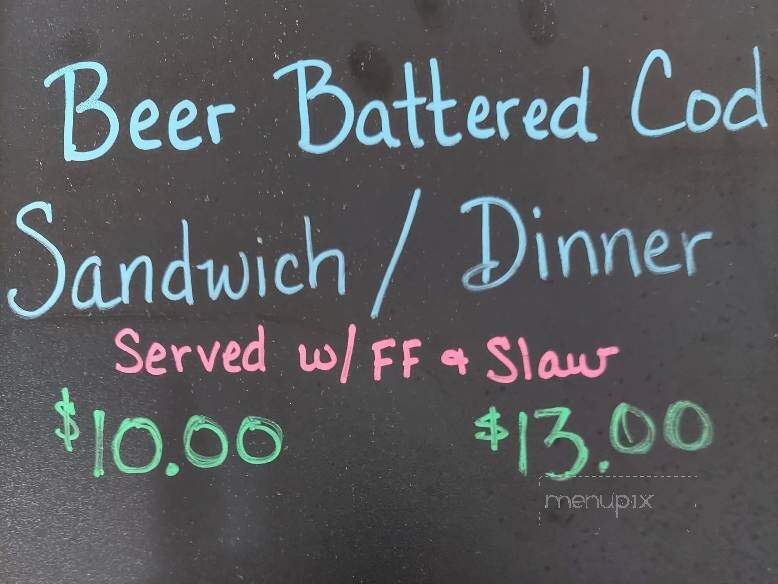 Beer Battered Cod
Sandwich / Dinner
Served w/ FF & Slaw
$10.00 $13.00
menupix